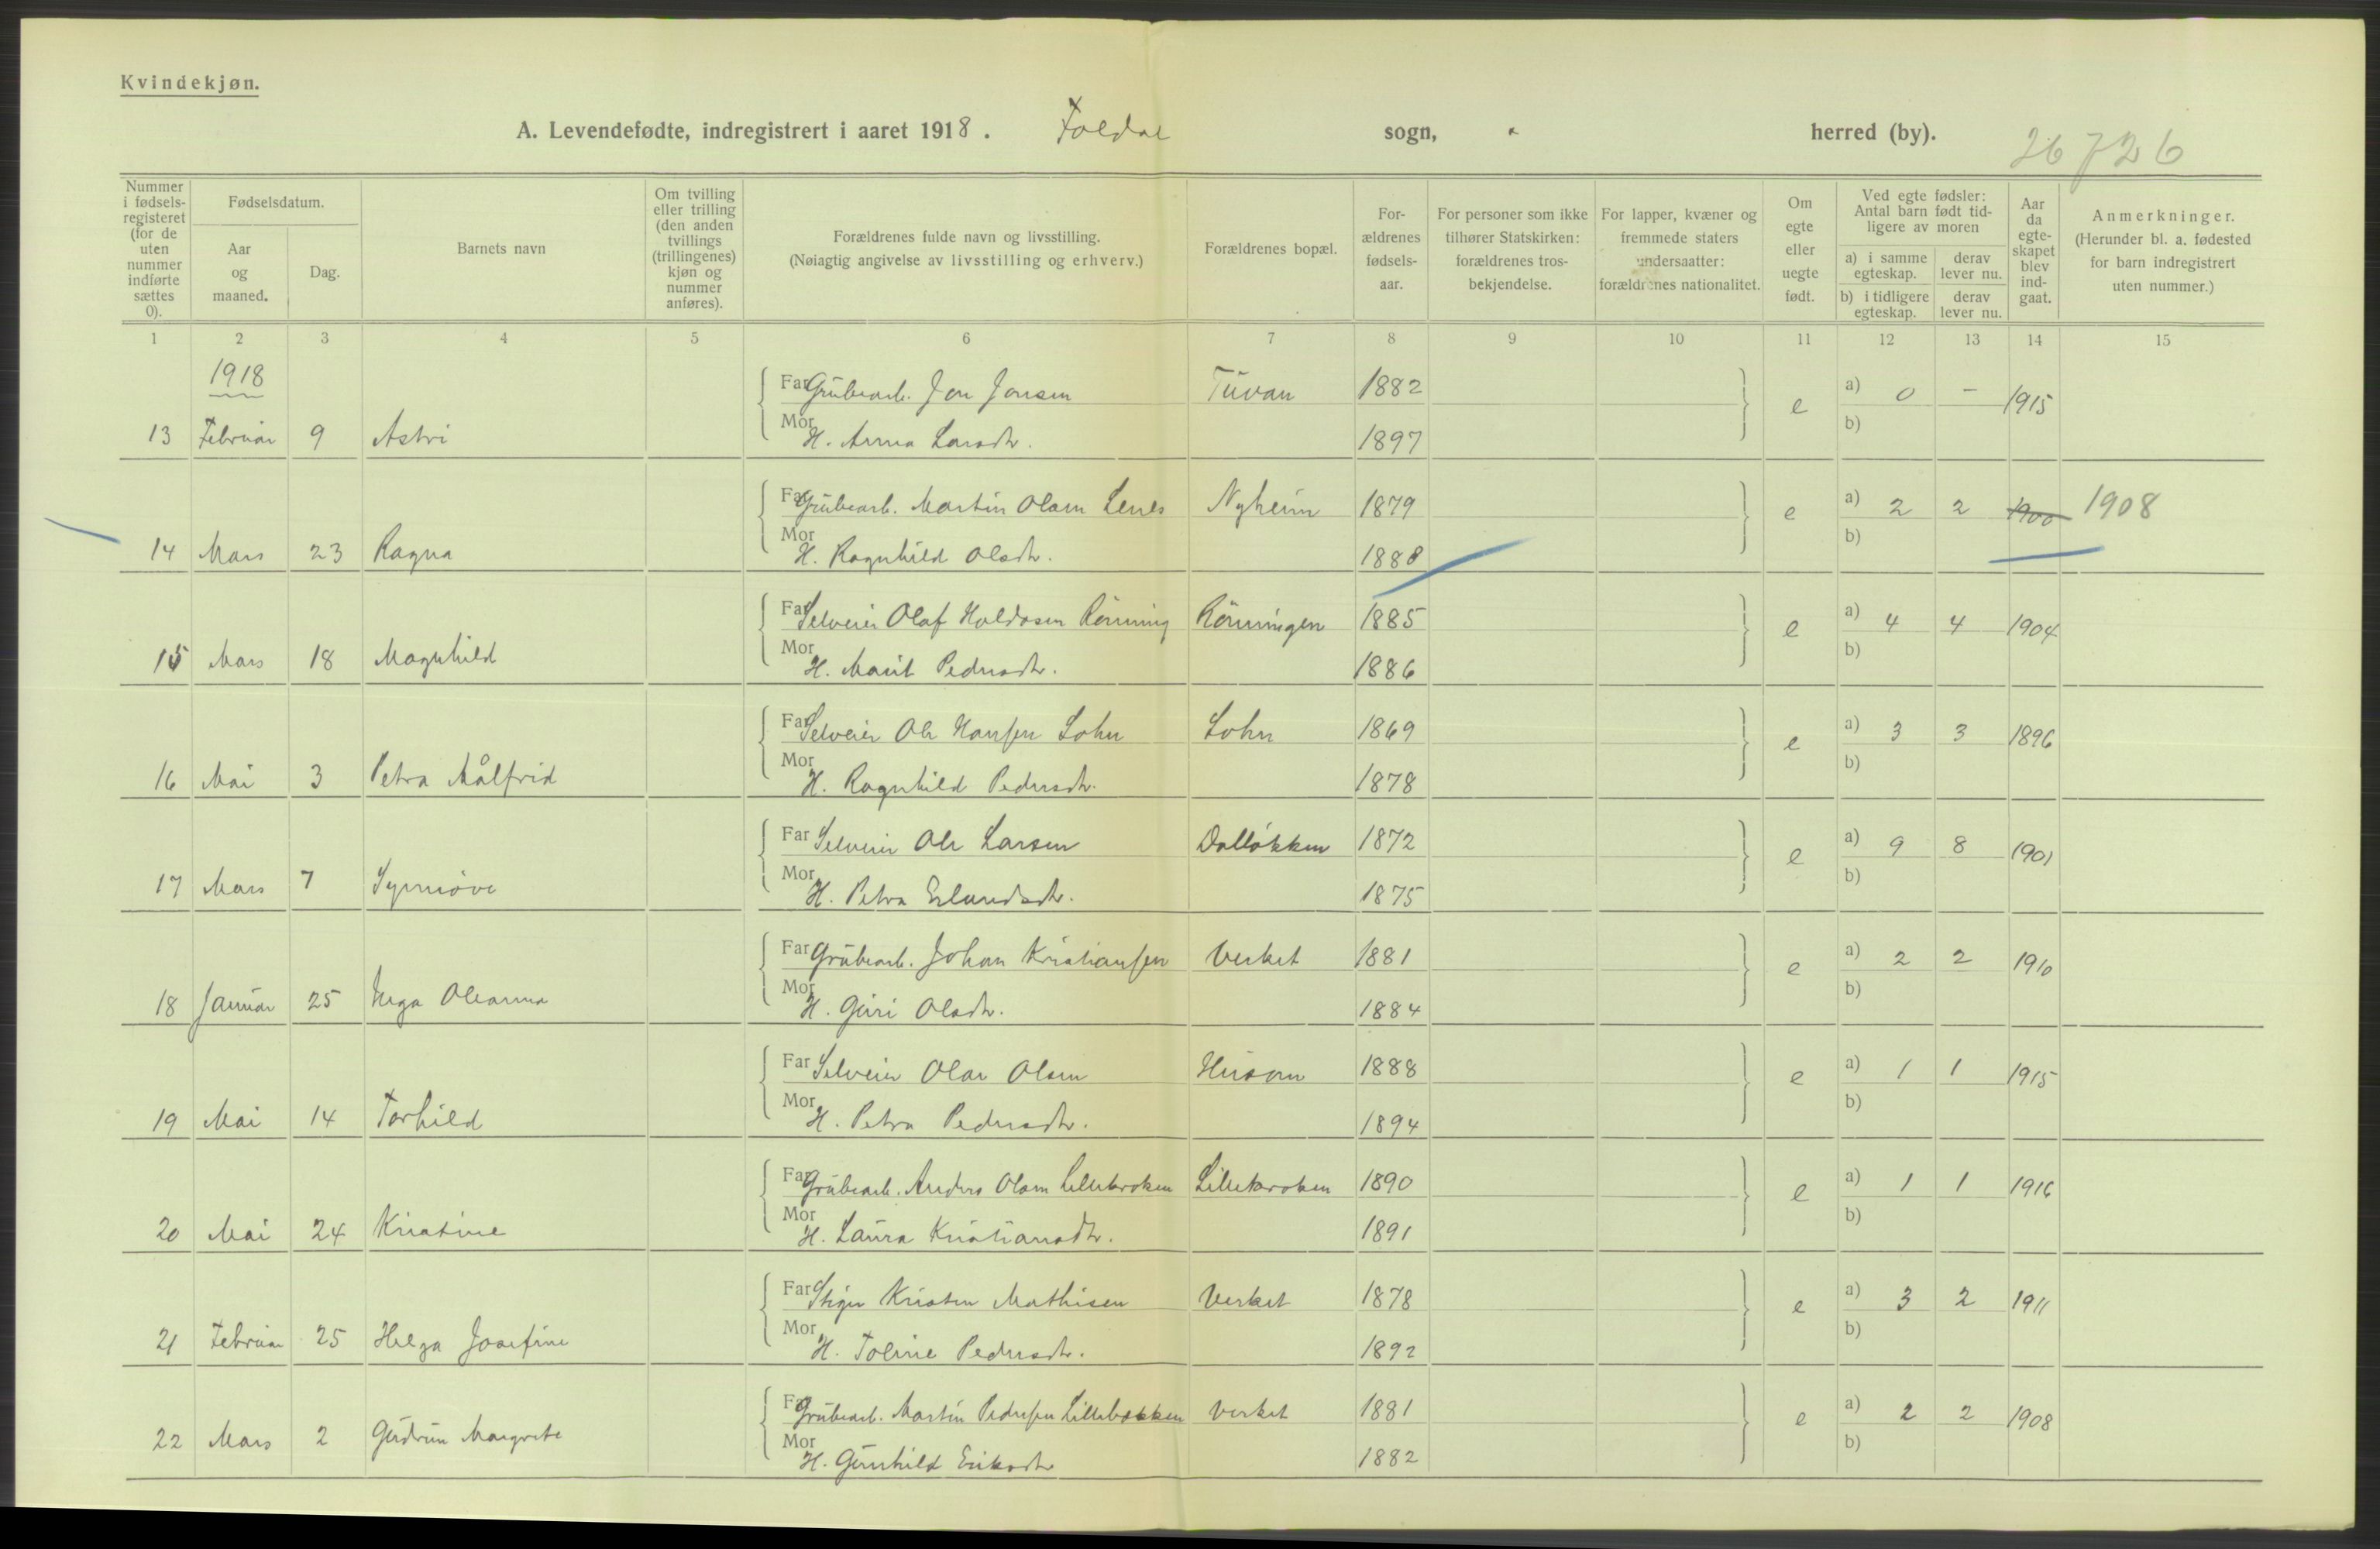 Kvindekjøn.
A. Levendefødte, indregistrert i aaret 1918. Foldal sogn, " herred (by). 26726
Nummer i fødselsregisteret (for de uten nummer indførte sættes 0).
Fødselsdatum.
Aar og maaned.
Dag.
Barnets navn
Om tvilling eller trilling (den anden tvillings (trillingenes) kjøn og nummer anføres).
Forældrenes fulde navn og livsstilling.
(Nøiagtig angivelse av livsstilling og erhverv.)
Forældrenes bopæl.
Forældrenes fødselsaar.
For personer som ikke tilhører Statskirken: forældrenes trosbekjendelse.
For lapper, kvæner og fremmede staters undersaatter: forældrenes nationalitet.
Om egte eller uegte født.
Ved egte fødsler: Antal barn født tidligere av moren
a) i samme egteskap.
derav lever nu.
b) i tidligere egteskap.
derav lever nu.
Aar da egteskapet blev indgaat.
Anmerkninger.
(Herunder bl. a. fødested for barn indregistrert uten nummer.)
1 2 3 4 5 6 7 8 9 10 11 12 13 14 15
1918
Far Grubearb. Jon Jonsen Tuvan 1882 e a) 0 – 1915
13 Februar 9 Astri Mor H. Anna Larsdtr. 1897 b)
Far Grubearb. Martin Olsen Lenes Nyheim 1879 e a) 2 2 1900 1908
14 Mars 23 Ragna Mor H. Ragnhild Olsdtr. 1888 b)
Far Selveier Olaf Haldosen Rönning Rönningen 1885 e a) 4 4 1904
15 Mars 18 Magnhild Mor H. Marit Pedersdtr. 1886 b)
Far Selveier Ole Hansen Lohn Lohn 1869 e a) 3 3 1896
16 Mai 3 Petra Målfrid Mor H. Ragnhild Pedersdtr. 1878 b)
Far Selveier Ole Larsen Dalløkken 1872 e a) 9 8 1901
17 Mars 7 Synnöve Mor H. Petra Erlandsdtr. 1875 b)
Far Grubearb. Johan Kristiansen Verket 1881 e a) 2 2 1910
18 Januar 25 Inga Oleanna Mor H. Guri Olsdtr. 1884 b)
Far Selveier Olav Olsen Husom 1888 e a) 1 1 1915
19 Mai 14 Torhild Mor H. Petra Pedersdtr. 1894 b)
Far Grubearb. Anders Olsen Lillekroken Lillekroken 1890 e a) 1 1 1916
20 Mai 24 Kristine Mor H. Laura Kristiansdtr. 1891 b)
Far Stiger Kristen Mathisen Verket 1878 e a) 3 2 1911
21 Februar 25 Helga Josefine Mor H. Toline Pedersdtr. 1892 b)
Far Grubearb. Martin Pedersen Lillebækken Verket 1881 e a) 2 2 1908
22 Mars 2 Gudrun Margrete Mor H. Gunhild Eriksdtr 1882 b)